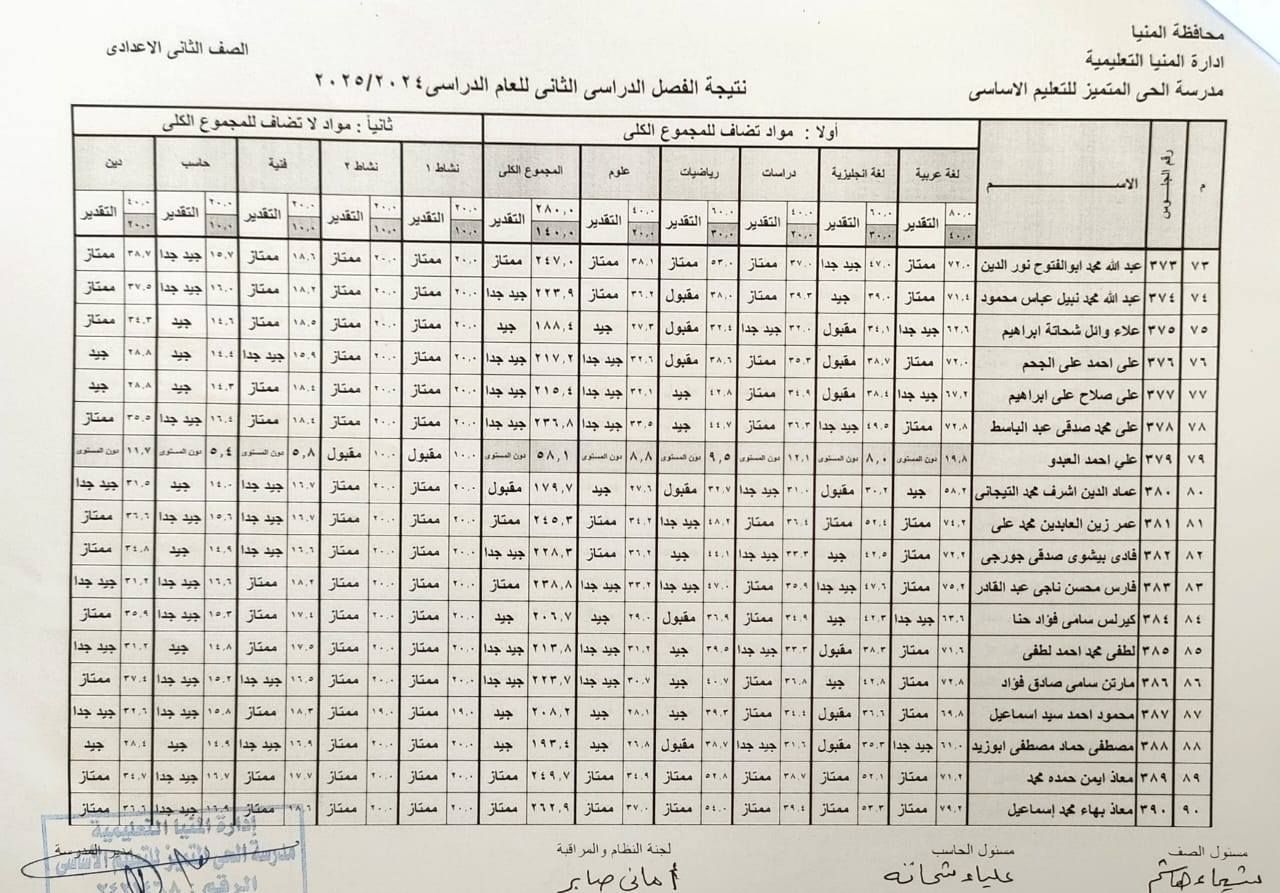 محافظة المنيا
ادارة المنيا التعليمية
مدرسة الحى المتميز للتعليم الاساسى
الصف الثانى الاعدادى
نتيجة الفصل الدراسى الثانى للعام الدراسى ٢٠٢٥/٢٠٢٤
أولا : مواد تضاف للمجموع الكلى ثانياً : مواد لا تضاف للمجموع الكلى
م رقم الجلوس الاســـم لغة عربية لغة انجليزية دراسات رياضيات علوم المجموع الكلى نشاط ١ نشاط ٢ فنية حاسب دين
٨٠,٠ التقدير ٦٠,٠ التقدير ٤٠,٠ التقدير ٦٠,٠ التقدير ٤٠,٠ التقدير ٢٨٠,٠ التقدير ٢٠,٠ التقدير ٢٠,٠ التقدير ٢٠,٠ التقدير ٢٠,٠ التقدير ٤٠,٠ التقدير
٤٠,٠ ٣٠,٠ ٢٠,٠ ٣٠,٠ ٢٠,٠ ١٤٠,٠ ١٠,٠ ١٠,٠ ١٠,٠ ١٠,٠ ٢٠,٠
٧٣ ٣٧٣ عبد الله محمد ابوالفتوح نور الدين ٧٢,٠ ممتاز ٤٧,٠ جيد جدا ٣٧,٠ ممتاز ٥٣,٠ ممتاز ٣٨,١ ممتاز ٢٤٧,٠ ممتاز ٢٠,٠ ممتاز ٢٠,٠ ممتاز ١٨,٦ ممتاز ١٥,٧ جيد جدا ٣٨,٧ ممتاز
٧٤ ٣٧٤ عبد الله محمد نبيل عباس محمود ٧١,٤ ممتاز ٣٩,٠ جيد ٣٩,٣ ممتاز ٣٨,٠ مقبول ٣٦,٢ ممتاز ٢٢٣,٩ جيد جدا ٢٠,٠ ممتاز ٢٠,٠ ممتاز ١٨,٢ ممتاز ١٦,٠ جيد جدا ٣٧,٥ ممتاز
٧٥ ٣٧٥ علاء وائل شحاتة ابراهيم ٦٢,٦ جيد جدا ٣٤,١ مقبول ٣٢,٠ جيد جدا ٣٢,٤ مقبول ٢٧,٣ جيد ١٨٨,٤ جيد ٢٠,٠ ممتاز ٢٠,٠ ممتاز ١٨,٥ ممتاز ١٤,٦ جيد ٣٤,٣ ممتاز
٧٦ ٣٧٦ على احمد على الجحم ٧٢,٠ ممتاز ٣٨,٧ مقبول ٣٥,٣ ممتاز ٣٨,٦ مقبول ٣٢,٦ جيد جدا ٢١٧,٢ جيد جدا ٢٠,٠ ممتاز ٢٠,٠ ممتاز ١٥,٩ جيد جدا ١٤,٤ جيد ٢٨,٨ جيد
٧٧ ٣٧٧ على صلاح على ابراهيم ٦٧,٢ جيد جدا ٣٨,٤ مقبول ٣٤,٩ ممتاز ٤٢,٨ جيد ٣٢,١ جيد جدا ٢١٥,٤ جيد جدا ٢٠,٠ ممتاز ٢٠,٠ ممتاز ١٨,٤ ممتاز ١٤,٣ جيد ٢٨,٨ جيد
٧٨ ٣٧٨ على محمد صدقى عبد الباسط ٧٢,٨ ممتاز ٤٩,٥ جيد جدا ٣٦,٣ ممتاز ٤٤,٧ جيد ٣٣,٥ جيد جدا ٢٣٦,٨ جيد جدا ٢٠,٠ ممتاز ٢٠,٠ ممتاز ١٨,٤ ممتاز ١٦,٤ جيد جدا ٣٥,٥ ممتاز
٧٩ ٣٧٩ علي احمد العبدو ١٩,٨ دون المستوى ٨,٠ دون المستوى ١٢,١ دون المستوى ٩,٥ دون المستوى ٨,٨ دون المستوى ٥٨,١ دون المستوى ١٠,٠ مقبول ١٠,٠ مقبول ٥,٨ دون المستوى ٥,٤ دون المستوى ١١,٧ دون المستوى
٨٠ ٣٨٠ عماد الدين اشرف محمد التيجانى ٥٨,٢ جيد ٣٠,٢ مقبول ٣١,٠ جيد جدا ٣٢,٧ مقبول ٢٧,٦ جيد ١٧٩,٧ مقبول ٢٠,٠ ممتاز ٢٠,٠ ممتاز ١٦,٧ جيد جدا ١٤,٠ جيد ٣١,٥ جيد جدا
٨١ ٣٨١ عمر زين العابدين محمد على ٧٤,٢ ممتاز ٥٢,٤ ممتاز ٣٦,٤ ممتاز ٤٨,٢ جيد جدا ٣٤,٢ ممتاز ٢٤٥,٣ ممتاز ٢٠,٠ ممتاز ٢٠,٠ ممتاز ١٦,٧ جيد جدا ١٥,٦ جيد جدا ٣٦,٦ ممتاز
٨٢ ٣٨٢ فادى بيشوى صدقى جورجى ٧٢,٢ ممتاز ٤٢,٥ جيد ٣٣,٣ جيد جدا ٤٤,١ جيد ٣٦,٢ ممتاز ٢٢٨,٣ جيد جدا ٢٠,٠ ممتاز ٢٠,٠ ممتاز ١٦,٦ جيد جدا ١٤,٩ جيد ٣٤,٨ ممتاز
٨٣ ٣٨٣ فارس محسن ناجى عبد القادر ٧٥,٢ ممتاز ٤٧,٦ جيد جدا ٣٥,٩ ممتاز ٤٧,٠ جيد جدا ٣٣,٢ جيد جدا ٢٣٨,٨ ممتاز ٢٠,٠ ممتاز ٢٠,٠ ممتاز ١٨,٢ ممتاز ١٦,٦ جيد جدا ٣١,٢ جيد جدا
٨٤ ٣٨٤ كيرلس سامى فؤاد حنا ٦٣,٦ جيد جدا ٤٢,٣ جيد ٣٤,٩ ممتاز ٣٦,٩ مقبول ٢٩,٠ جيد ٢٠٦,٧ جيد ٢٠,٠ ممتاز ٢٠,٠ ممتاز ١٧,٤ ممتاز ١٥,٣ جيد جدا ٣٥,٩ ممتاز
٨٥ ٣٨٥ لطفى محمد احمد لطفى ٧١,٦ ممتاز ٣٨,٣ مقبول ٣٣,٢ جيد جدا ٣٩,٥ جيد ٣١,٢ جيد جدا ٢١٣,٨ جيد جدا ٢٠,٠ ممتاز ٢٠,٠ ممتاز ١٧,٥ ممتاز ١٤,٨ جيد ٣١,٢ جيد جدا
٨٦ ٣٨٦ مارتن سامى صادق فؤاد ٧٢,٨ ممتاز ٤٢,٨ جيد ٣٦,٨ ممتاز ٤٠,٧ جيد ٣٠,٧ جيد جدا ٢٢٣,٧ جيد جدا ٢٠,٠ ممتاز ٢٠,٠ ممتاز ١٦,٥ جيد جدا ١٥,٢ جيد جدا ٣٧,٤ ممتاز
٨٧ ٣٨٧ محمود احمد سيد اسماعيل ٦٩,٨ ممتاز ٣٦,٦ مقبول ٣٤,٤ ممتاز ٣٩,٣ جيد ٢٨,١ جيد ٢٠٨,٢ جيد ١٩,٠ ممتاز ١٩,٠ ممتاز ١٨,٣ ممتاز ١٥,٨ جيد جدا ٣٢,٦ جيد جدا
٨٨ ٣٨٨ مصطفى حماد مصطفى ابوزيد ٦١,٠ جيد جدا ٣٥,٣ مقبول ٣١,٦ جيد جدا ٣٨,٧ مقبول ٢٦,٨ جيد ١٩٣,٤ جيد ٢٠,٠ ممتاز ٢٠,٠ ممتاز ١٦,٩ جيد جدا ١٤,٩ جيد ٢٨,٤ جيد
٨٩ ٣٨٩ معاذ ايمن حمده محمد ٧١,٢ ممتاز ٥٢,١ ممتاز ٣٨,٧ ممتاز ٥٢,٨ ممتاز ٣٤,٩ ممتاز ٢٤٩,٧ ممتاز ٢٠,٠ ممتاز ٢٠,٠ ممتاز ١٧,٧ ممتاز ١٦,٧ جيد جدا ٣٤,٧ ممتاز
٩٠ ٣٩٠ معاذ بهاء محمد إسماعيل ٧٩,٢ ممتاز ٥٣,٣ ممتاز ٣٩,٤ ممتاز ٥٤,٠ ممتاز ٣٧,٠ ممتاز ٢٦٢,٩ ممتاز ٢٠,٠ ممتاز ٢٠,٠ ممتاز ١٨,٦ ممتاز ١٦,٩ جيد جدا ٣٦,٦ ممتاز
مسئول الصف مسئول الحاسب لجنة النظام والمراقبة مدير المدرسة
شيماء هاشم علياء شحاته أمانى صابر
إدارة المنيا التعليمية
مدرسة الحى المتميز للتعليم الاساسى